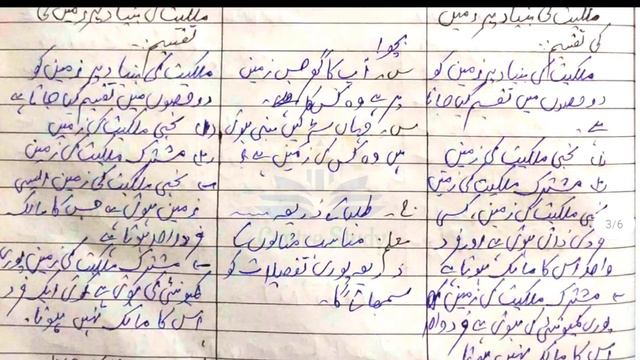 ملکیت کی بنیاد پر زمین
کی تقسیم:
ملکیت کی بنیاد پر زمین کو
دو حصوں میں تقسیم کیا جاتا
ہے۔
نجی ملکیت کی زمین
مشترکہ ملکیت کی زمین
نجی ملکیت کی زمین، کسی
فرد کی ذاتی ہوتی ہے اور فرد
واحد اس کا مالک ہوتا ہے
مشترکہ ملکیت کی زمین
پوری کمیونٹی کی ہوتی ہے فرد واحد
اس کا مالک نہیں ہوتا
3/6
بچو!
س۔ آپ کا گھر جس زمین
پر ہے وہ کس کا
س۔ جہاں سڑکیں بنی ہوئی
ہیں وہ کس کی زمین ہے؟
ج۔ طلبا کے ذریعہ
معلم مناسب مثالوں کے
ذریعہ پوری تفصیلات کو
سمجھائے گا۔
ملکیت کی بنیاد پر زمین کی
تقسیم:
ملکیت کی بنیاد پر زمین کو
دو حصوں میں تقسیم کیا جاتا ہے
نجی ملکیت کی زمین
مشترکہ ملکیت کی زمین
نجی ملکیت کی زمین ایسی
زمین ہوتی ہے جس کا مالک
فرد واحد ہوتا ہے
مشترکہ ملکیت کی زمین پوری
کمیونٹی کی ہوتی ہے کوئی ایک فرد
اس کا مالک نہیں ہوتا۔